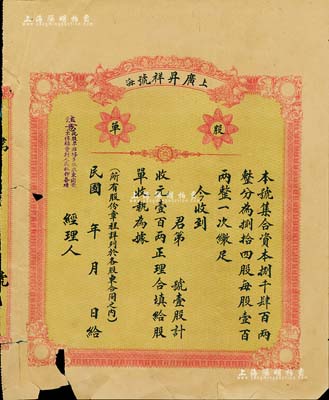 上海陽明拍賣
上海 廣昇祥號
股單
本號集合資本捌千肆百兩
整分為捌拾四股每股壹百
兩整一次繳足
今收到
君第 號壹股計
收元壹百兩正理合填給股
單收執為據
(所有股份章程詳列於各股東合同之內)
民國 年 月 日給
經理人